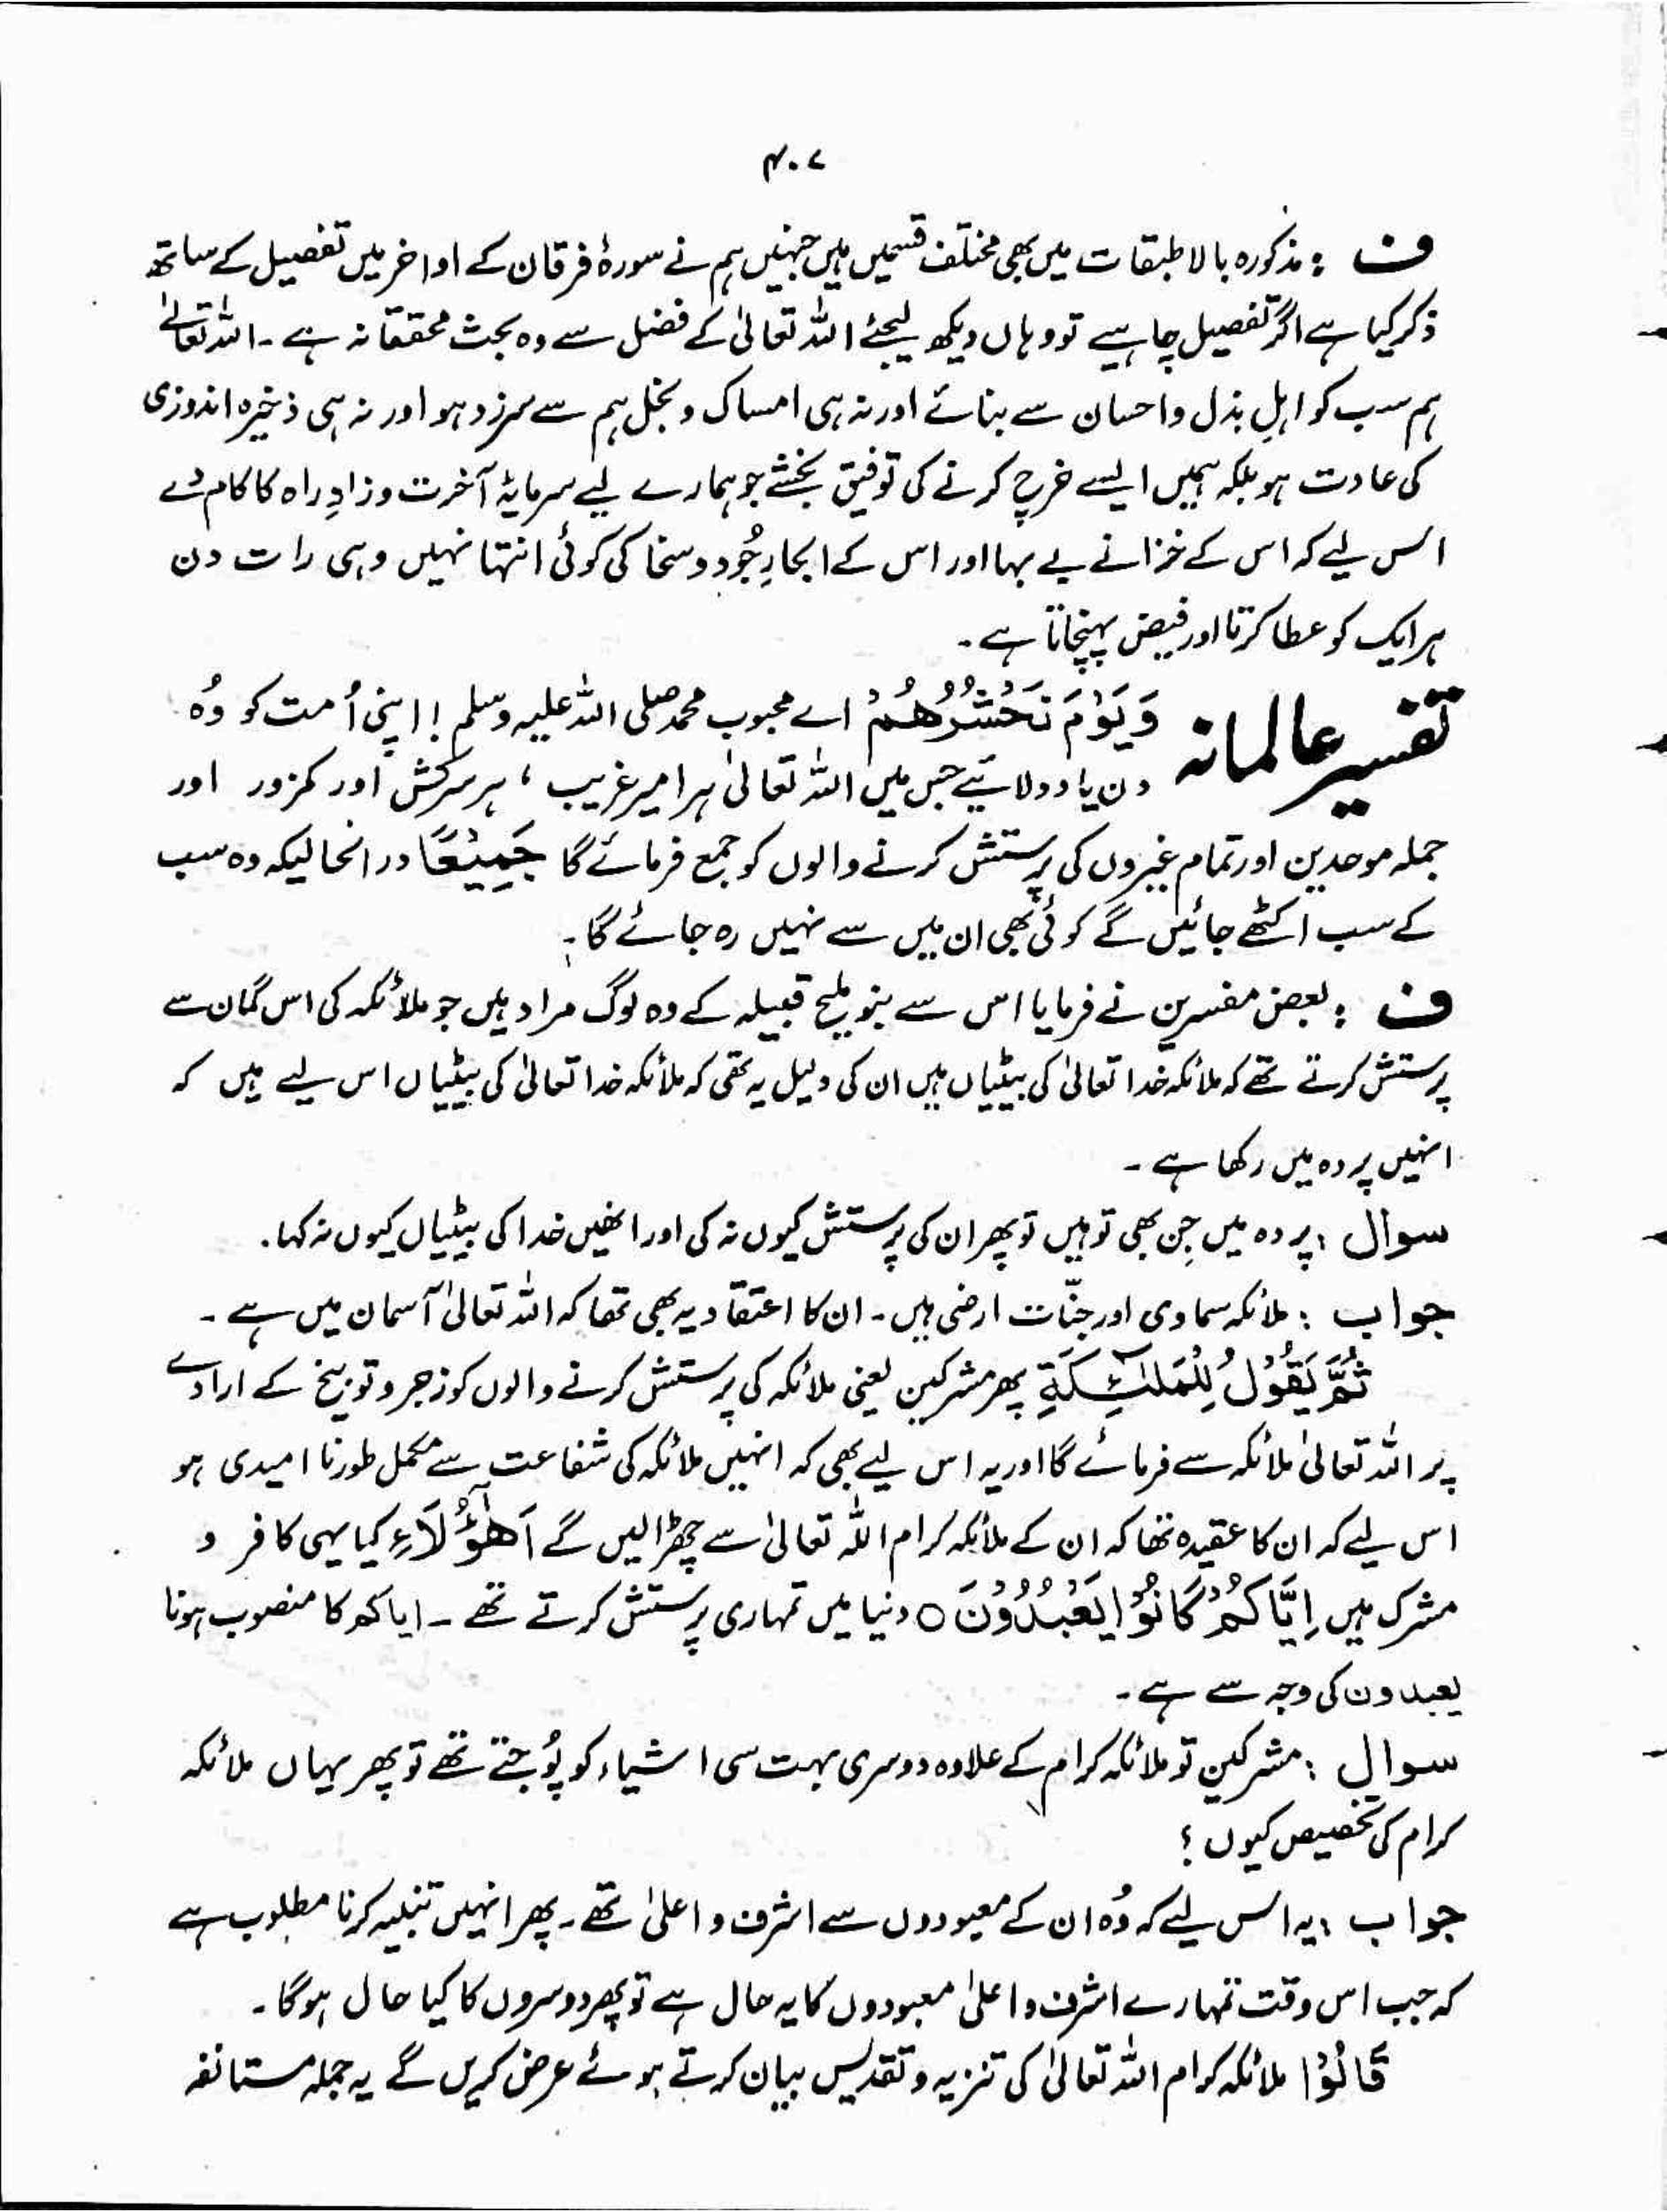 ۴۰۷
ف : مذکورہ بالا طبقات میں بھی مختلف قسمیں ہیں جنہیں ہم نے سورۂ فرقان کے اواخر میں تفصیل کے ساتھ
ذکر کیا ہے اگر تفصیل چاہیے تو وہاں دیکھ لیجئے اللہ تعالیٰ کے فضل سے وہ بحث محققانہ ہے ۔ اللہ تعالےٰ
ہم سب کو اہلِ بذل و احسان سے بنائے اور نہ ہی امساک و بخل ہم سے سرزد ہو اور نہ ہی ذخیرہ اندوزی
کی عادت ہو بلکہ ہمیں ایسے خرچ کرنے کی توفیق بخشے جو ہمارے لیے سرمایۂ آخرت و زادِ راہ کا کام دے
اس لیے کہ اس کے خزانے بے بہا اور اس کے ابحارِ جُود و سخا کی کوئی انتہا نہیں وہی رات دن
ہر ایک کو عطا کرتا اور فیض پہنچاتا ہے ۔
تفسیر عالمانہ وَيَوْمَ نَحْشُرُهُمْ اے محبوب محمد صلی اللہ علیہ وسلم ! اپنی اُمت کو وُہ
دن یاد دلائیے جس میں اللہ تعالیٰ ہر امیر غریب ، ہر سرکش اور کمزور اور
جملہ موحدین اور تمام غیروں کی پرستش کرنے والوں کو جمع فرمائے گا جَمِيْعًا در انحالیکہ وہ سب
کے سب اکٹھے جائیں گے کوئی بھی ان میں سے نہیں رہ جائے گا ۔
ف : بعض مفسرین نے فرمایا اس سے بنو ملیح قبیلہ کے وہ لوگ مراد ہیں جو ملائکہ کی اس گمان سے
پرستش کرتے تھے کہ ملائکہ خدا تعالیٰ کی بیٹیاں ہیں ان کی دلیل یہ تھی کہ ملائکہ خدا تعالیٰ کی بیٹیاں اس لیے ہیں کہ
انہیں پردہ میں رکھا ہے ۔
سوال : پردہ میں جِن بھی تو ہیں تو پھر ان کی پرستش کیوں نہ کی اور انھیں خدا کی بیٹیاں کیوں نہ کہا ۔
جواب : ملائکہ سماوی اور جنّات ارضی ہیں ۔ ان کا اعتقاد یہ بھی تھا کہ اللہ تعالیٰ آسمان میں ہے ۔
ثُمَّ يَقُوْلُ لِلْمَلٰٓئِكَةِ پھر مشرکین یعنی ملائکہ کی پرستش کرنے والوں کو زجر و توبیخ کے ارادے
پر اللہ تعالیٰ ملائکہ سے فرمائے گا اور یہ اس لیے بھی کہ انہیں ملائکہ کی شفاعت سے مکمل طور نا امیدی ہو
اس لیے کہ ان کا عقیدہ تھا کہ ان کے ملائکہ کرام اللہ تعالیٰ سے چھڑا لیں گے اَهٰٓؤُلَآءِ کیا یہی کافر و
مشرک ہیں اِيَّاكُمْ كَانُوْا يَعْبُدُوْنَ ○ دنیا میں تمہاری پرستش کرتے تھے ۔ ایاکم کا منصوب ہونا
یعبدون کی وجہ سے ہے ۔
سوال : مشرکین تو ملائکہ کرام کے علاوہ دوسری بہت سی اشیاء کو پُوجتے تھے تو پھر یہاں ملائکہ
کرام کی تخصیص کیوں ؟
جواب : یہ اس لیے کہ وُہ ان کے معبودوں سے اشرف و اعلیٰ تھے ۔ پھر انہیں تنبیہ کرنا مطلوب ہے
کہ جب اس وقت تمہارے اشرف و اعلیٰ معبودوں کا یہ حال ہے تو پھر دوسروں کا کیا حال ہوگا ۔
قَالُوْا ملائکہ کرام اللہ تعالیٰ کی تنزیہ و تقدیس بیان کرتے ہوئے عرض کریں گے یہ جملہ مستانفہ